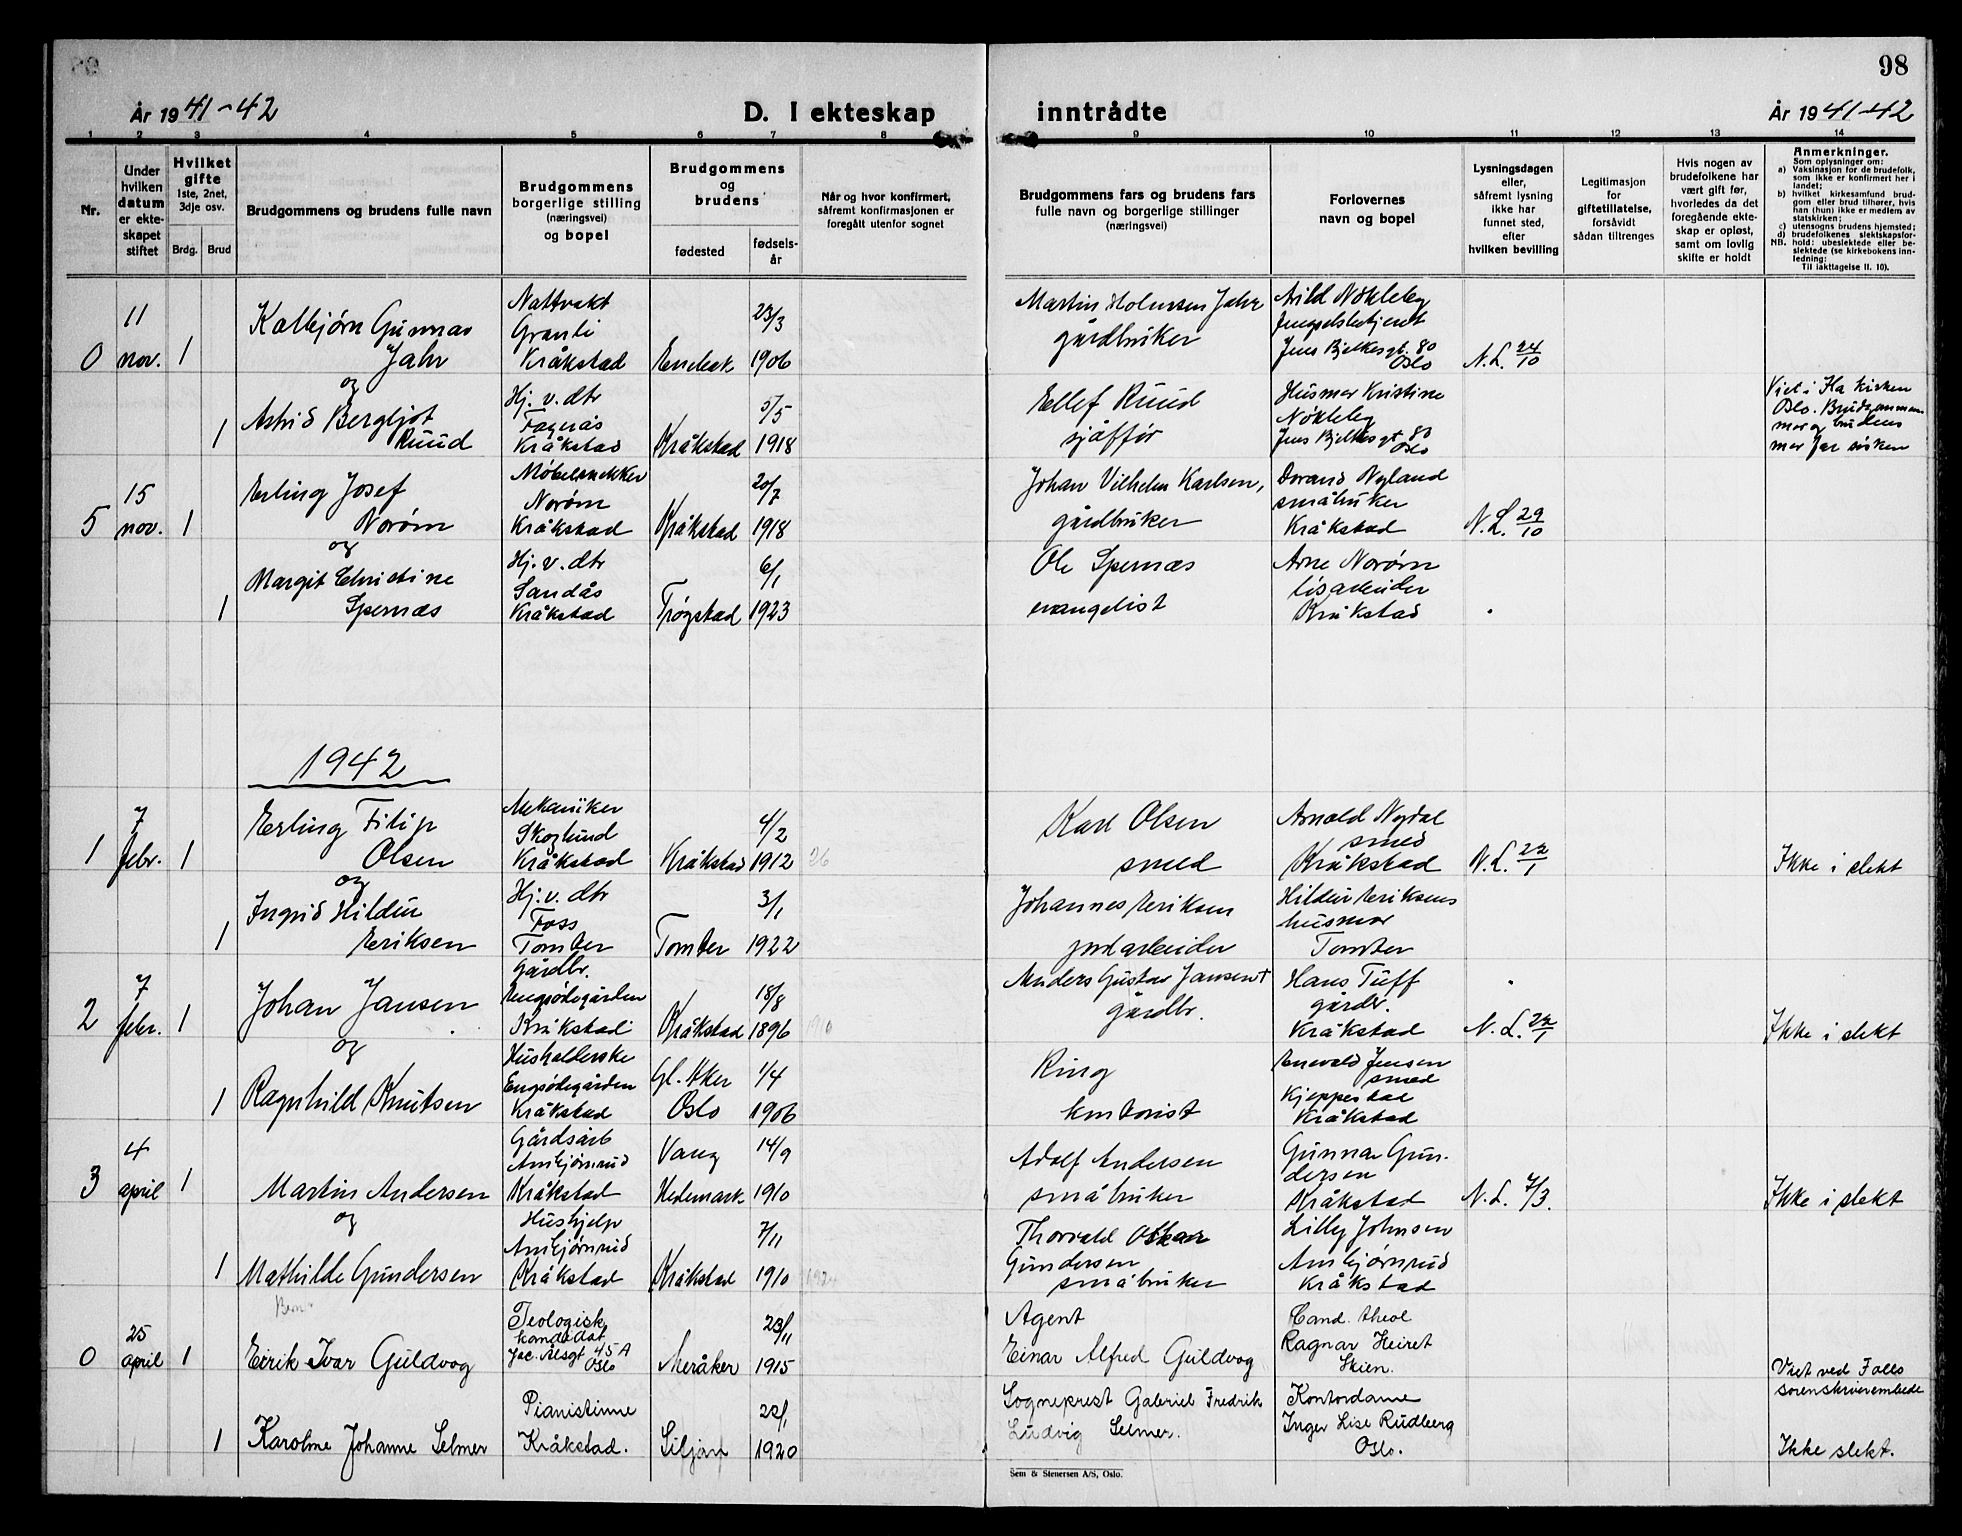 98
År 1941-42
D. I ekteskap
inntrådte
År 1941-42
1 2 3 4 5 6 7 8 9 10 11 12 13 14
Nr.
Under
hvilken
datum
er ekte-
skapet
stiftet
Hvilket
gifte
1ste, 2net,
3dje osv.
Brdg. Brud
Brudgommens og brudens fulle navn
Brudgommens
borgerlige stilling
(næringsvei)
og bopel
Brudgommens
og
brudens
fødested
fødsels-
år
Når og hvor konfirmert,
såfremt konfirmasjonen er
foregått utenfor sognet
Brudgommens fars og brudens fars
fulle navn og borgerlige stillinger
(næringsvei)
Forlovernes
navn og bopel
Lysningsdagen
eller,
såfremt lysning
ikke har
funnet sted,
efter
hvilken bevilling
Legitimasjon
for
giftetillatelse,
forsåvidt
sådan tiltrenges
Hvis nogen av
brudefolkene har
vært gift før,
hvorledes da det
foregående ekte-
skap er opløst,
samt om lovlig
skifte er holdt
Anmerkninger.
Som oplysninger om:
a) Vaksinasjon for de brudefolk,
som ikke er konfirmert her i
landet;
b) hvilket kirkesamfund brud-
gom eller brud tilhører, hvis
han (hun) ikke er medlem av
statskirken;
c) utensogns brudens hjemsted;
d) brudefolkenes slektskapsfor-
NB. hold: ubeslektede eller be-
slektede (se kirkebokens inn-
ledning:
Til iakttagelse II. 10).
0
11
nov.
1
Kolbjørn Gunnar
Jahr
Nattvakt
Granli
Kråkstad
Enebak
23/3
1906
Martin Holmsen Jahr
gårdbruker
Arild Nökleby
fengselsbetjent
Jens Bjelkesgt. 80
Oslo
N.L. 24/10
og
1
Astrid Bergljot
Ruud
Hj. v. dtr
Fagerås
Kråkstad
Kråkstad
5/5
1918
Ellef Ruud
sjåffør
Husmor Kristine
Nökleby
Jens Bjelkesgt 80
Oslo
Viet i Ka kirken
Oslo. Brudgommens
mor og brudens
mor far søsken
5
15
nov.
1
Erling Josef
Norøm
Møbelsnekker
Norøm
Kråkstad
Kråkstad
20/7
1918
Johan Vilhelm Karlsen,
gårdbruker
Nyland
småbruker
Kråkstad
N.L. 29/10
og
1
Margit Christine
Spernæs
Hj. v. dtr
Sandås
Kråkstad
Trøgstad
6/1
1923
Ole Spernæs
evangelist
Arne Norøm
Kråkstad
1942
1
7
febr.
1
Erling Filip
Olsen
Mekaniker
Skoglund
Kråkstad
Kråkstad
4/2
1912
26
Karl Olsen
smed
Arnold Nydal
smed
Kråkstad
N.L. 22/1
Ikke i slekt
og
1
Ingrid Hildur
Eriksen
Hj. v. dtr
Foss
Tomter
Tomter
3/1
1922
Johannes Eriksen
jordarbeider
Hildur Eriksens
husmor
Tomter
2
7
febr.
1
Johan Jansen
Gårdbr.
Engsødegården
Kråkstad
Kråkstad
18/8
1896
1910
Anders Gustav Jansen†
gårdbr.
Hans Tuff
gårdbr.
Kråkstad
N.L. 22/1
Ikke i slekt
og
1
Ragnhild Knutsen
Husholderske
Engsødegården
Kråkstad
Gl. Aker
Oslo
1/4
1906
Ring
kontorist
Enevald Jensen
smed
Kjeppestad
Kråkstad
3
4
april
1
Martin Andersen
Gårdsarb
Ambjørnrud
Kråkstad
Vang
Hedemark
14/9
1910
Adolf Andersen
småbruker
Gunnar Gun-
dersen
Kråkstad
N.L. 7/3.
Ikke i slekt
og
1
Mathilde Gundersen
Hushjelp
Ambjørnrud
Kråkstad
Kråkstad
7/11
1910
1924
Thorvald Oskar
Gundersen
småbruker
Lilly Johnsen
Ambjørnrud
Kråkstad
0
25
april
1
Eirik Ivar Guldvog
Teologisk
kandidat
Jac. Alsgt 45 A
Oslo
Meråker
23/11
1915
Agent
Einar Alfred Guldvog
Cand. theol
Ragnar Heiret
Skien.
Viet ved Follo
sorenskriverembede
1
Karoline Johanne Selmer
Pianistinne
Kråkstad.
Siljan
22/1
1920
Sogneprest Gabriel Fredrik
Ludvig Selmer.
Kontordame
Inger Lise Rudberg
Oslo.
Ikke slekt.
Sem & Stenersen A/S, Oslo.